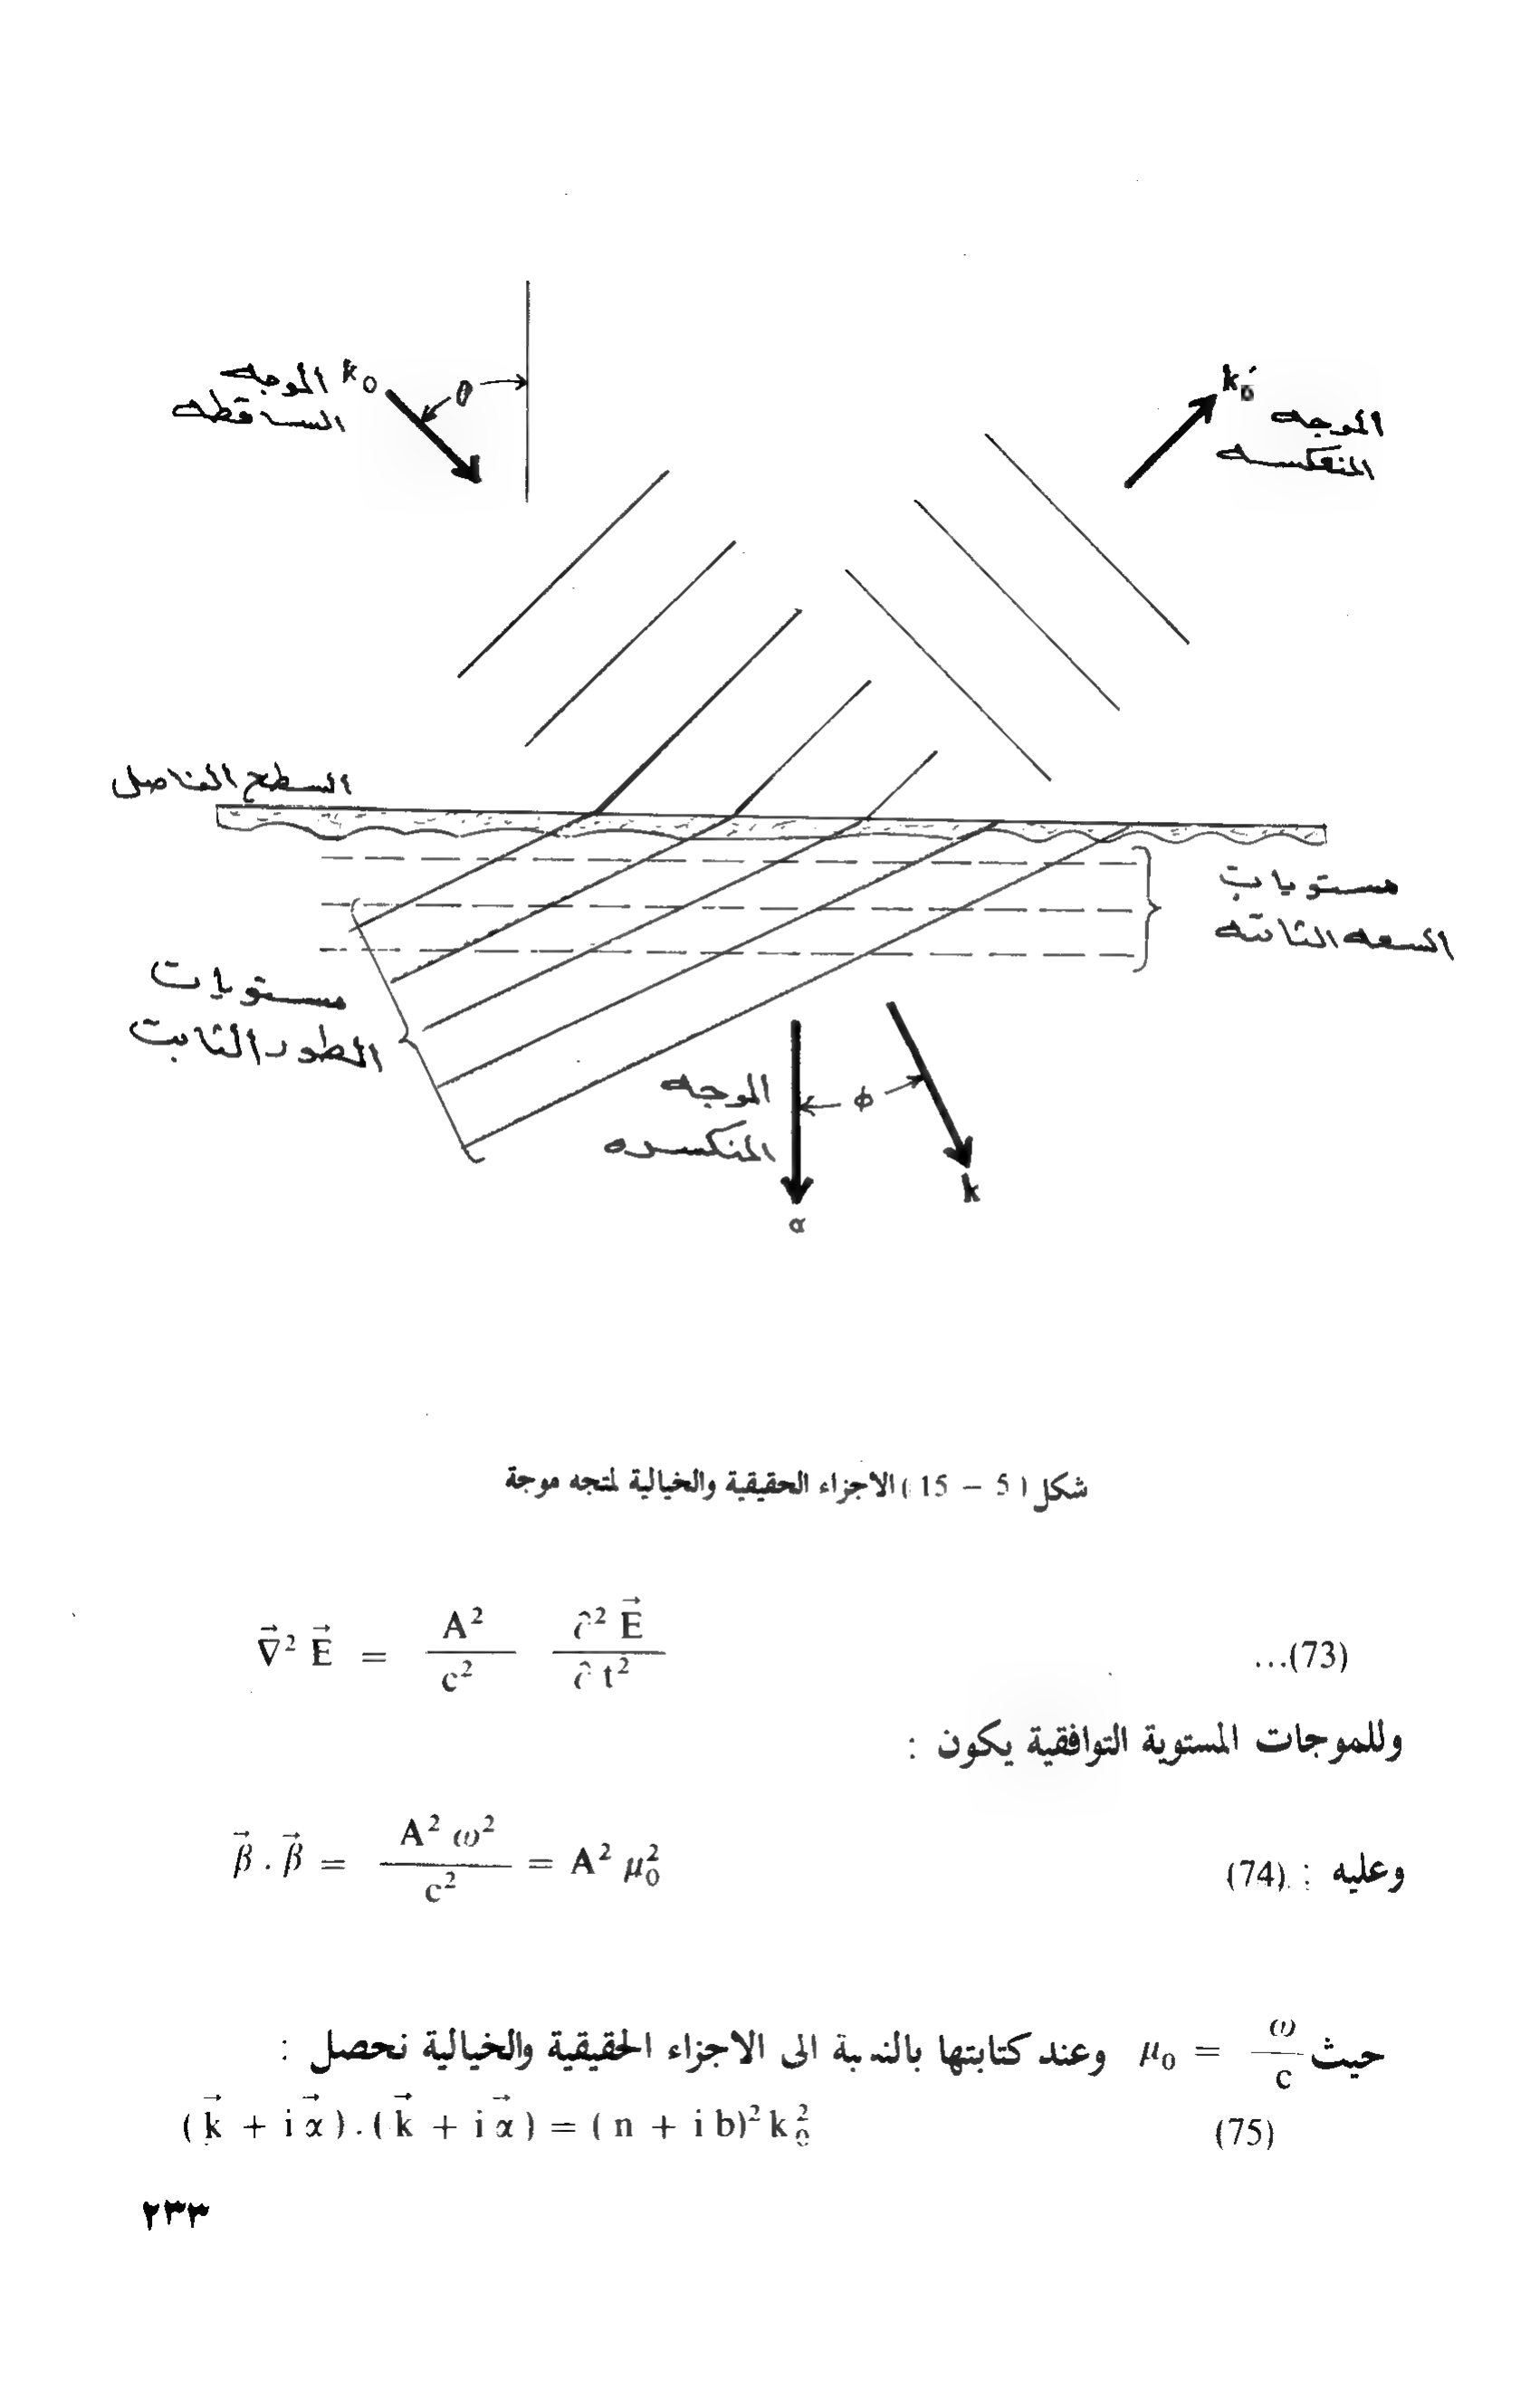 الموجه k₀
الساقطه
θ
k₀′
الموجه
المنعكسه
السطح الفاصل
مستويات
السعه الثابته
مستويات
الطور الثابت
الموجه
المنكسره
ϕ
k
α
شكل (5 – 15) الاجزاء الحقيقية والخيالية لمتجه موجة
∇⃗² E⃗ = A²/c² ∂² E⃗/∂ t² ...(73)
وللموجات المستوية التوافقية يكون :
β⃗ . β⃗ = A² ω²/c² = A² μ₀² وعليه : (74)
حيث μ₀ = ω/c وعند كتابتها بالنسبة الى الاجزاء الحقيقية والخيالية نحصل :
(k⃗ + i α⃗) . (k⃗ + i α⃗) = (n + i b)² k₀² (75)
٢٣٣